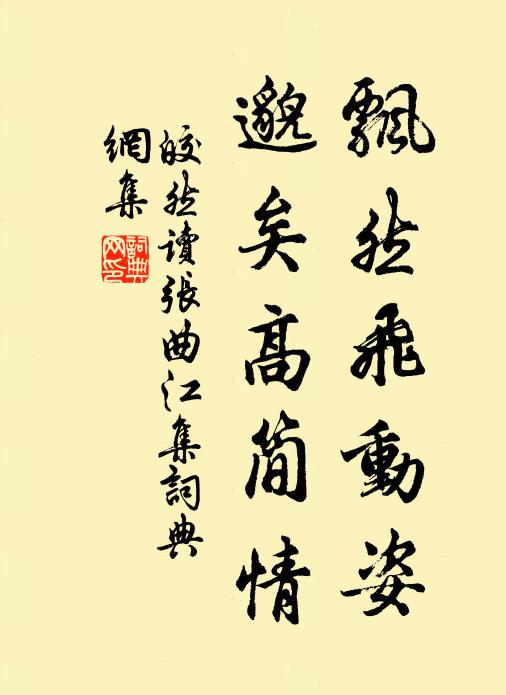 飄然飛動姿
邈矣高簡情
皎然讀張曲江集詞典
網集
詞典網印